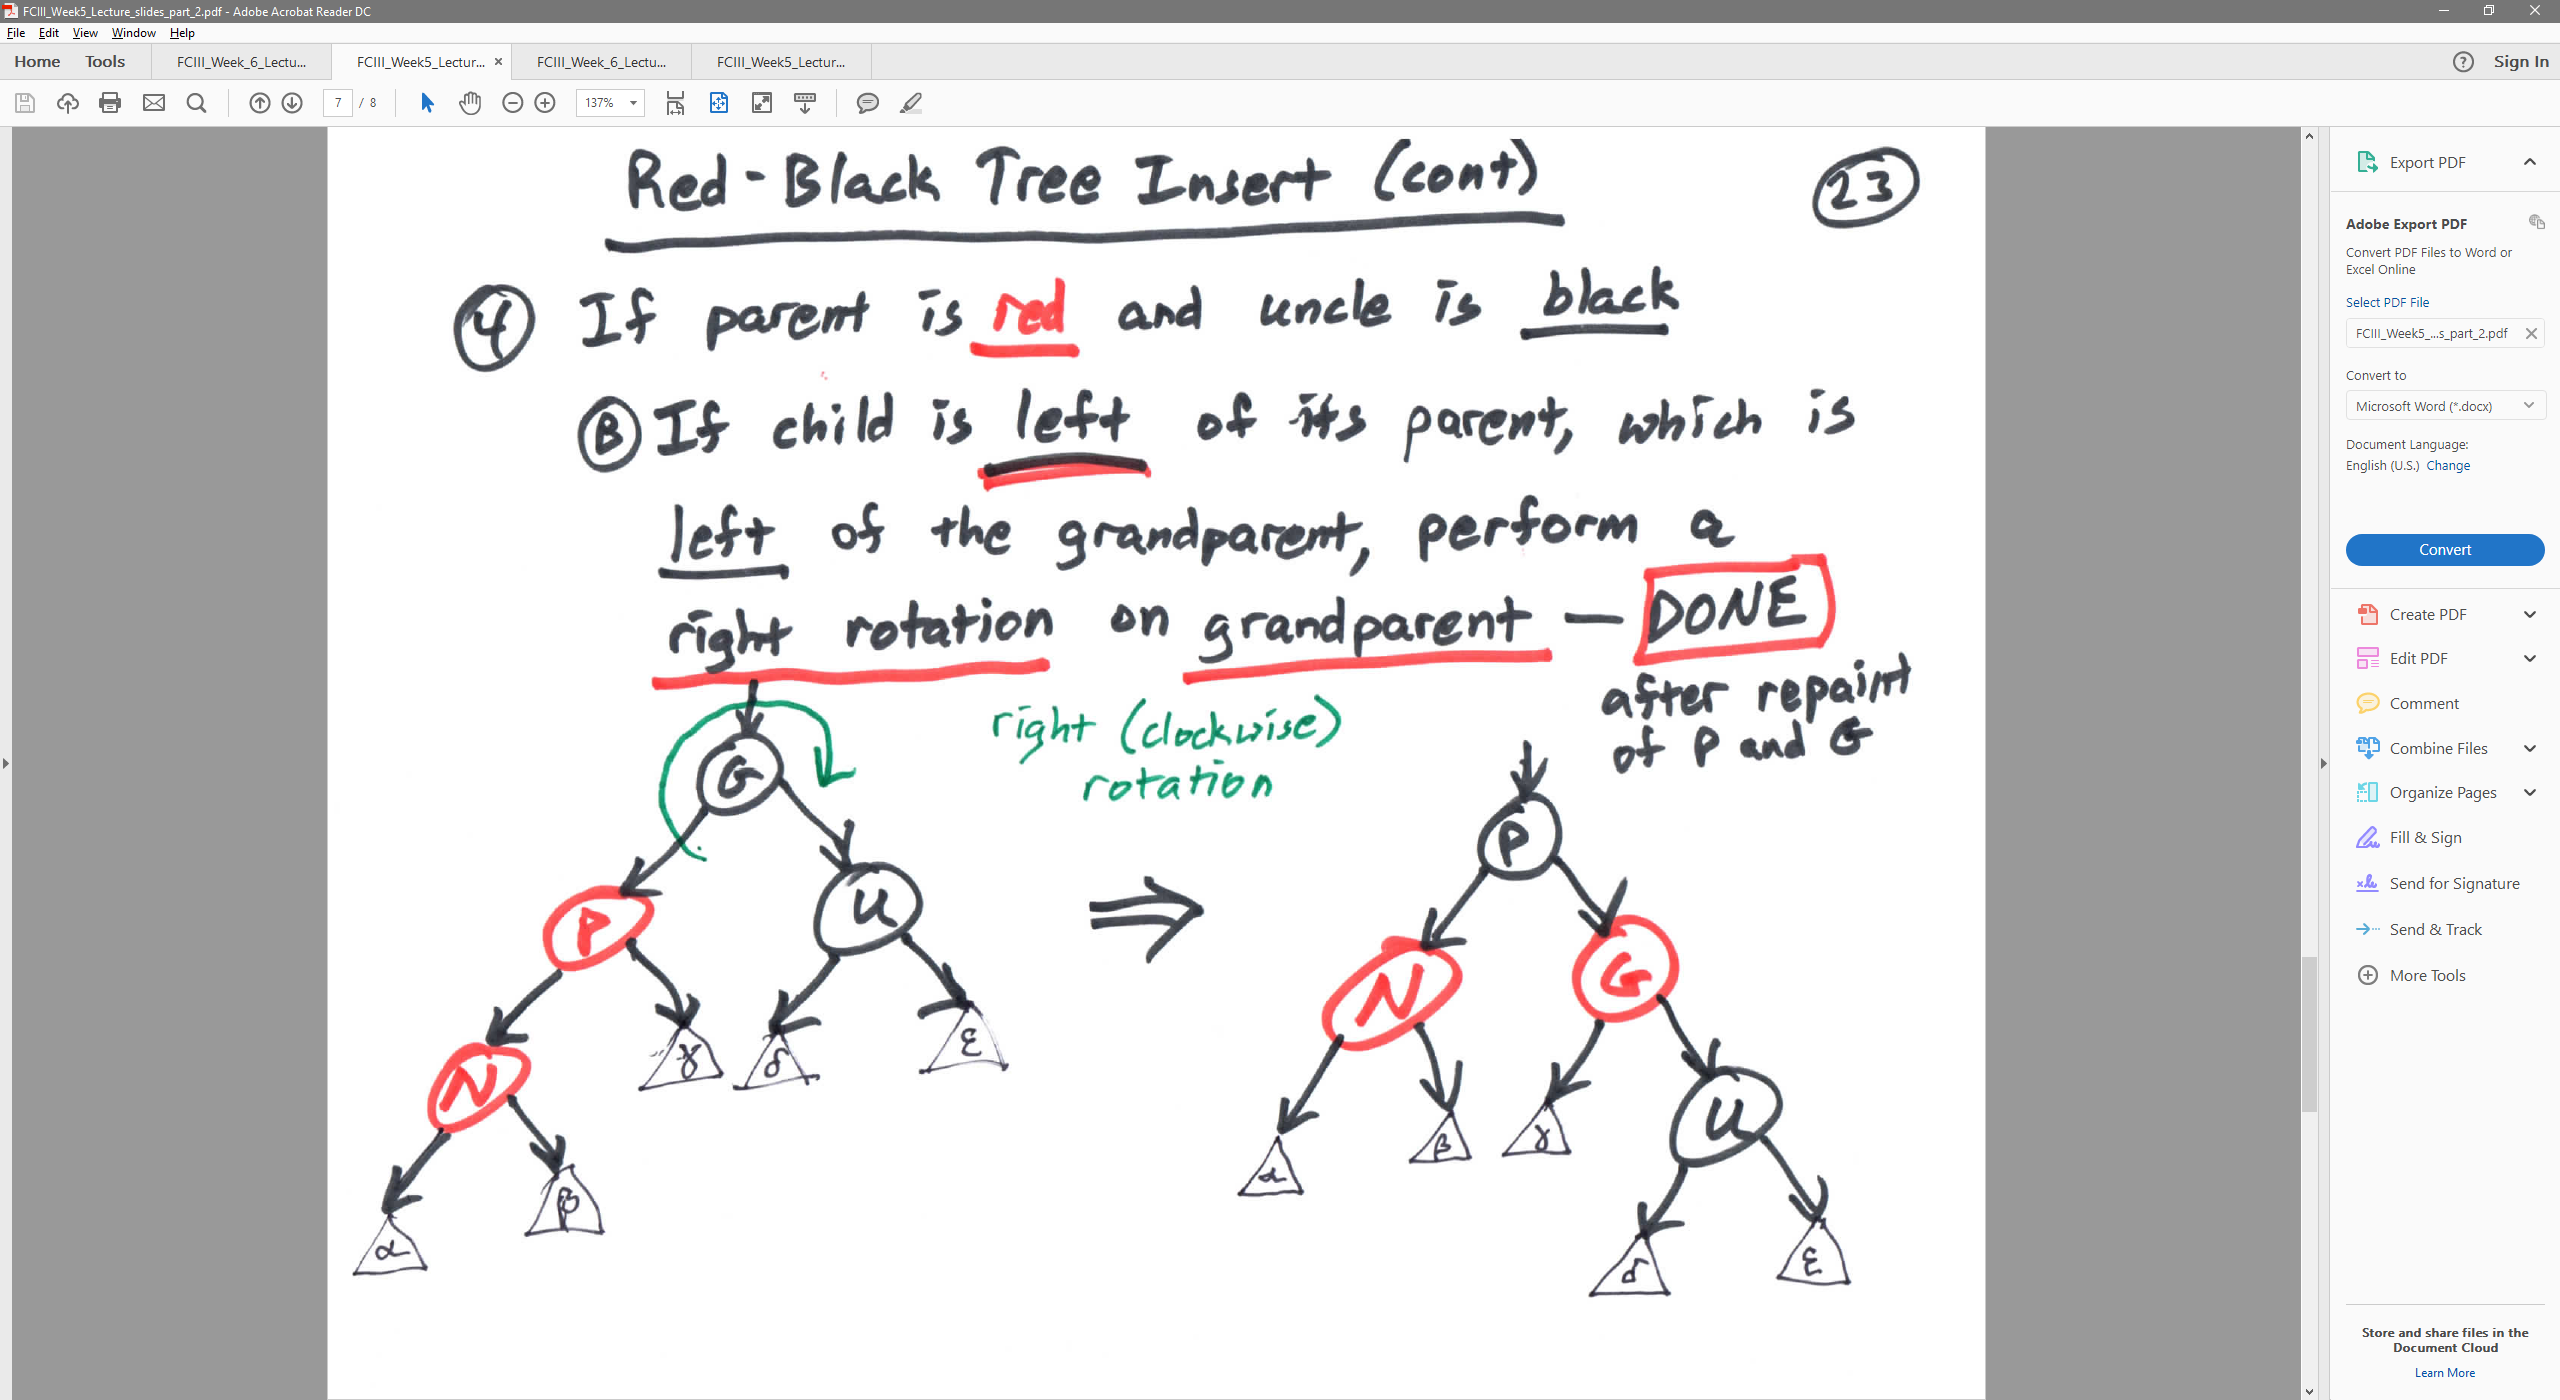 FCIII_Week5_Lecture_slides_part_2.pdf - Adobe Acrobat Reader DC
File Edit View Window Help
Home Tools FCIII_Week_6_Lectu... FCIII_Week5_Lectur... × FCIII_Week_6_Lectu... FCIII_Week5_Lectur... ? Sign In
7 / 8 137%
Red-Black Tree Insert (cont) 23
4 If parent is red and uncle is black
B If child is left of its parent, which is
left of the grandparent, perform a
right rotation on grandparent — DONE
after repaint
of P and G
right (clockwise)
rotation
G
P U
N γ δ ε
α β
⇒
P
N G
α β γ U
δ ε
Export PDF
Adobe Export PDF
Convert PDF Files to Word or
Excel Online
Select PDF File
FCIII_Week5_...s_part_2.pdf
Convert to
Microsoft Word (*.docx)
Document Language:
English (U.S.) Change
Convert
Create PDF
Edit PDF
Comment
Combine Files
Organize Pages
Fill & Sign
Send for Signature
Send & Track
More Tools
Store and share files in the
Document Cloud
Learn More